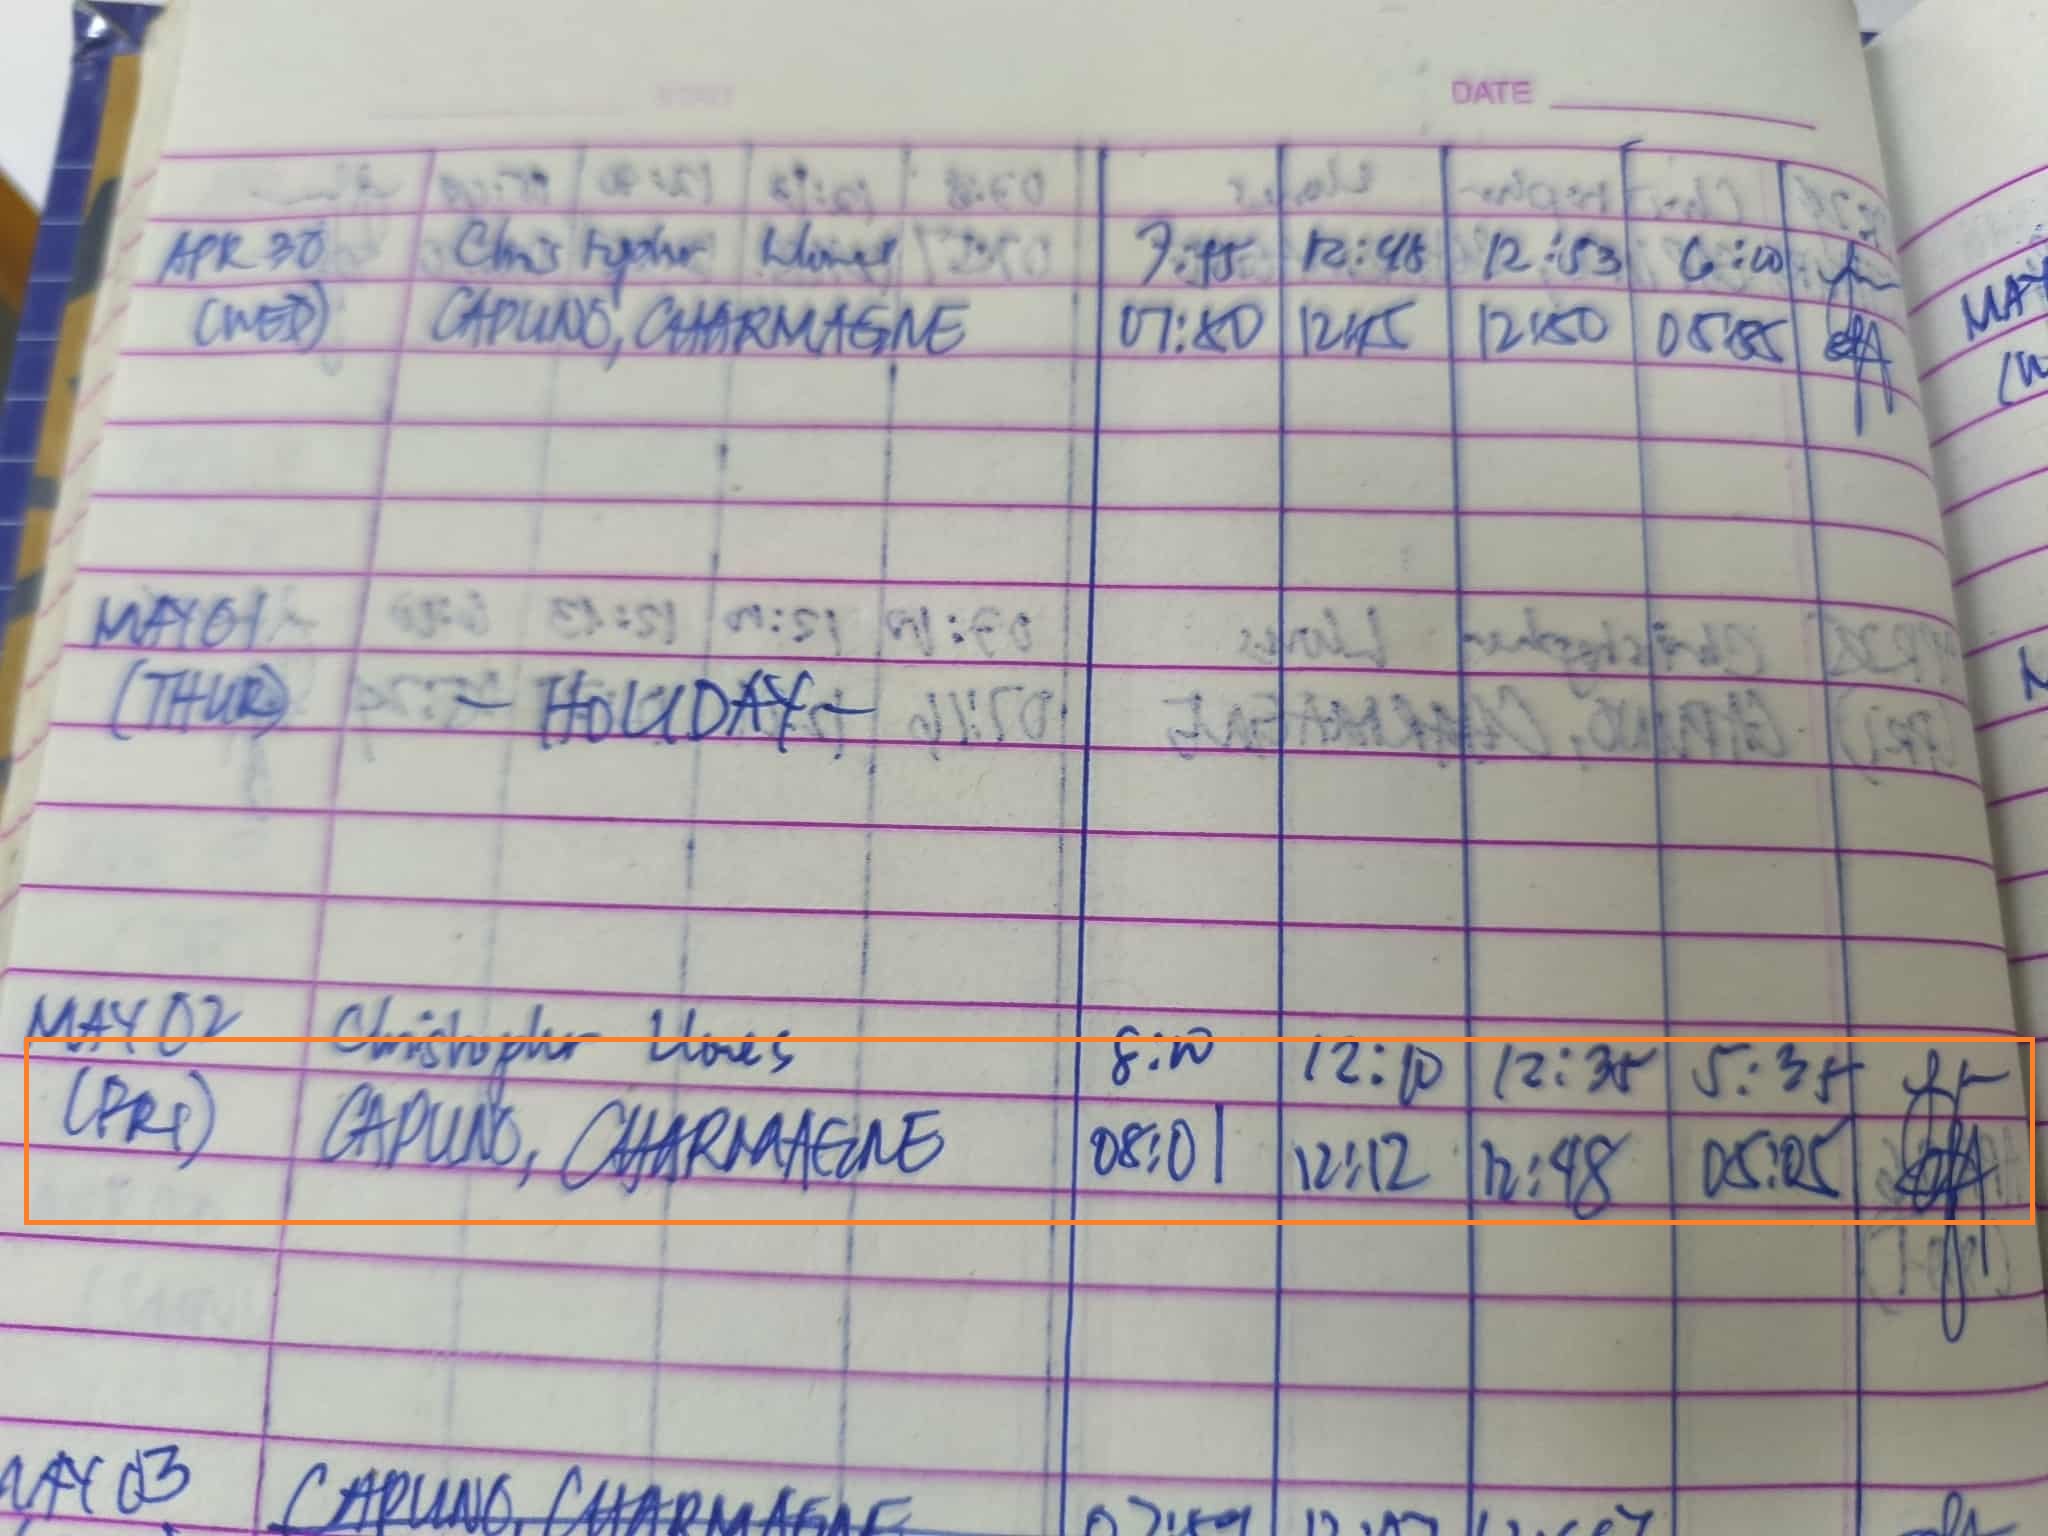 DATE
APR 30 Christopher Llones 7:45 12:48 12:53 6:00
(WED) CAPUNO, CHARMAGNE 07:50 12:45 12:50 05:55
MAY 01
(THUR) - HOLIDAY -
MAY 02 Christopher Llones 8:10 12:10 12:35 5:35
(FRI) CAPUNO, CHARMAGNE 08:01 12:12 12:48 05:05
MAY 03 CAPUNO, CHARMAGNE 07:59